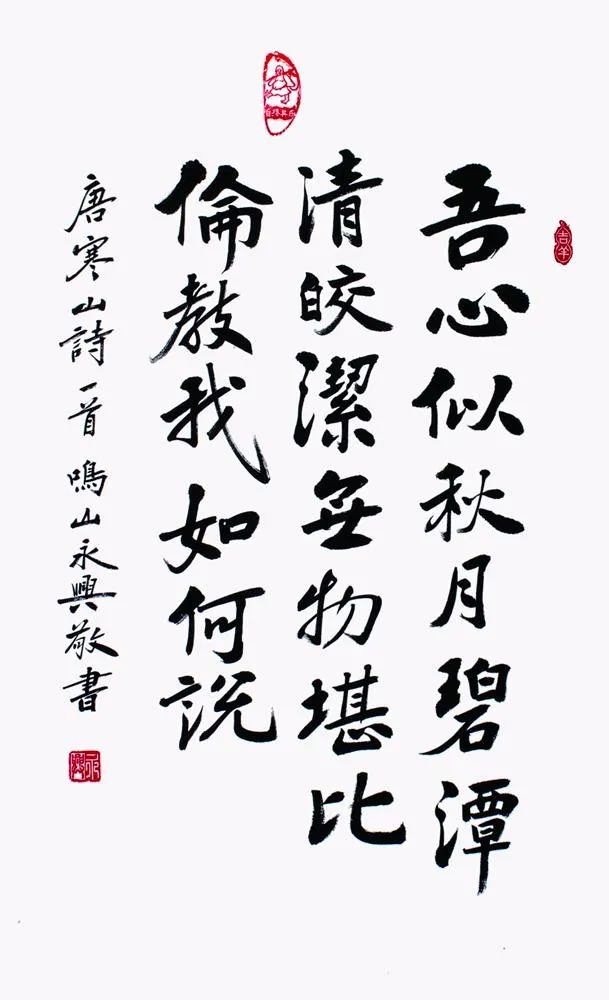 吾心似秋月碧潭
清皎潔無物堪比
倫教我如何説
唐寒山詩一首 鳴山永興敬書
吉羊